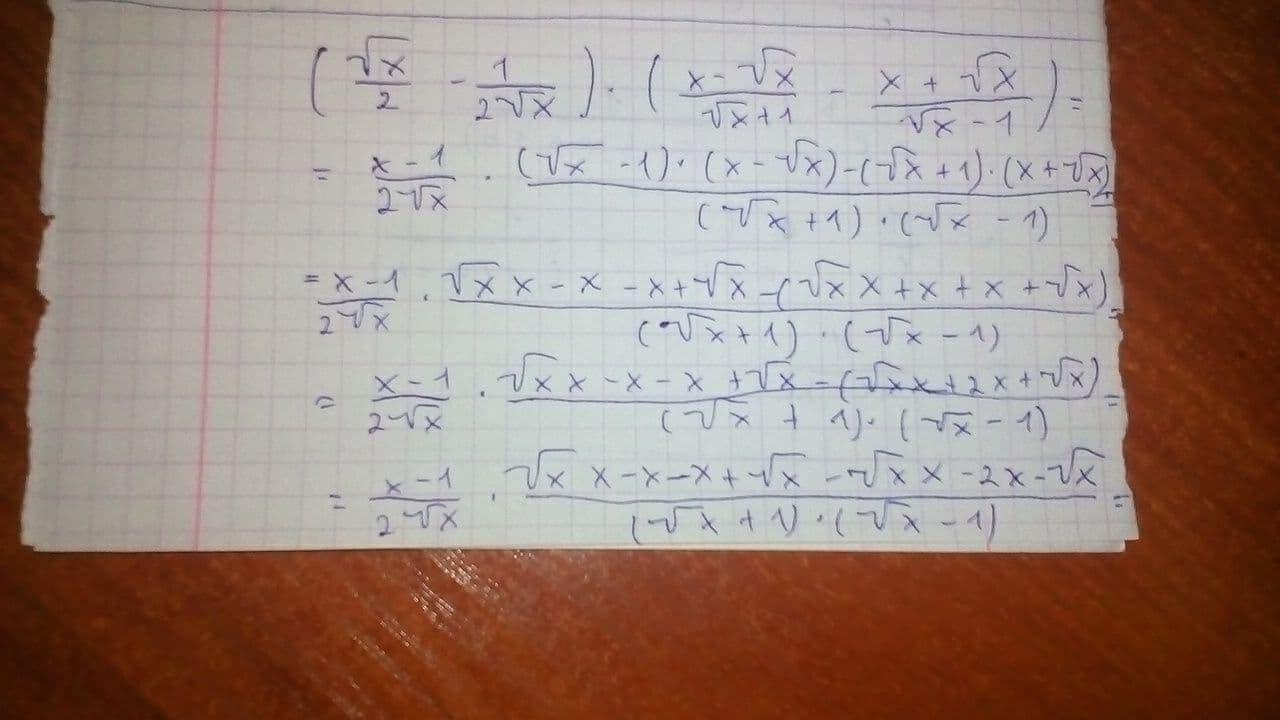 (√x/2 - 1/2√x) · (x - √x/√x+1 - x + √x/√x - 1) =
= x - 1/2√x · (√x - 1) · (x - √x) - (√x + 1) · (x + √x)/(√x + 1) · (√x - 1) =
= x - 1/2√x · √x x - x - x + √x - (√x x + x + x + √x)/(√x + 1) · (√x - 1) =
= x - 1/2√x · √x x - x - x + √x - (√x x + 2x + √x)/(√x + 1) · (√x - 1) =
= x - 1/2√x · √x x - x - x + √x - √x x - 2x - √x/(√x + 1) · (√x - 1) =